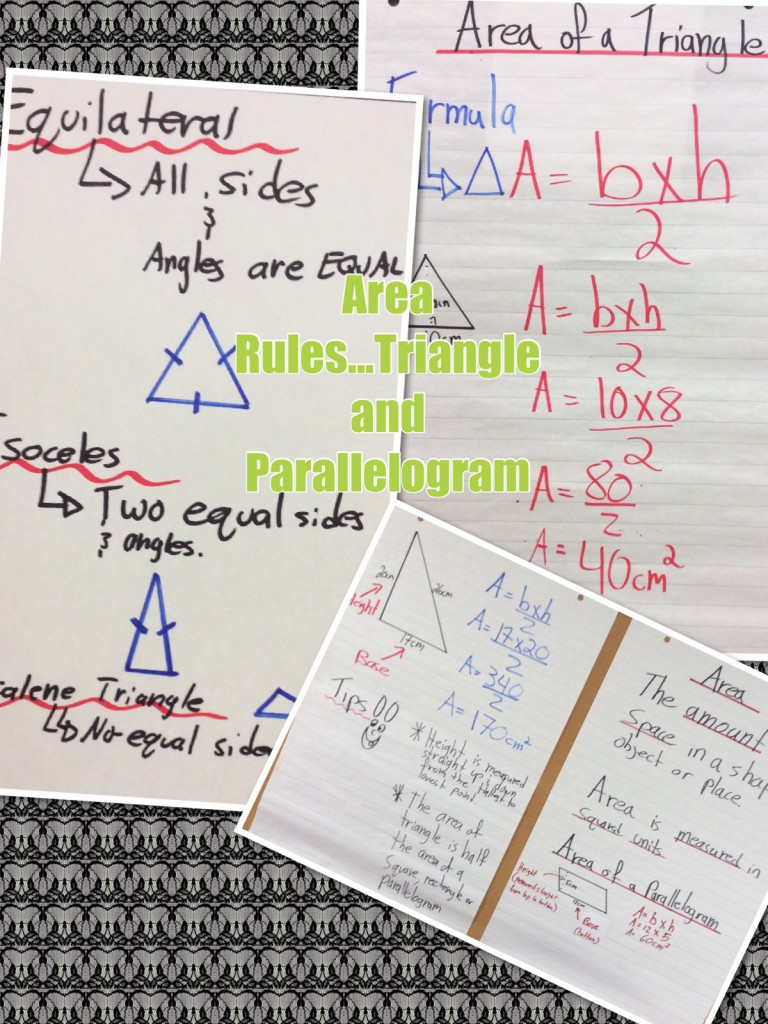 Area
Rules...Triangle
and
Parallelogram
Equilateral
All sides
&
Angles are EQUAL
soceles
Two equal sides
& angles.
alene Triangle
No equal side
Area of a Triangle
Formula
A = bxh
2
A = bxh
2
A = 10x8
2
A = 80
2
A = 40cm²
20cm
26cm
17cm
Base
A = bxh
2
A = 17x20
2
A = 340
2
A = 170cm²
Tips
* Height is measured
straight up & down
from the tallest to
lowest point
* The area of
triangle is half
the area of a
Square rectangle or
Parallelogram
Area
The amount
Space in a shap
object or place
Area is measured in
Squared units
Area of a Parallelogram
Height
Base
(bottom)
A = b x h
A = 12 x 5
A = 60cm²